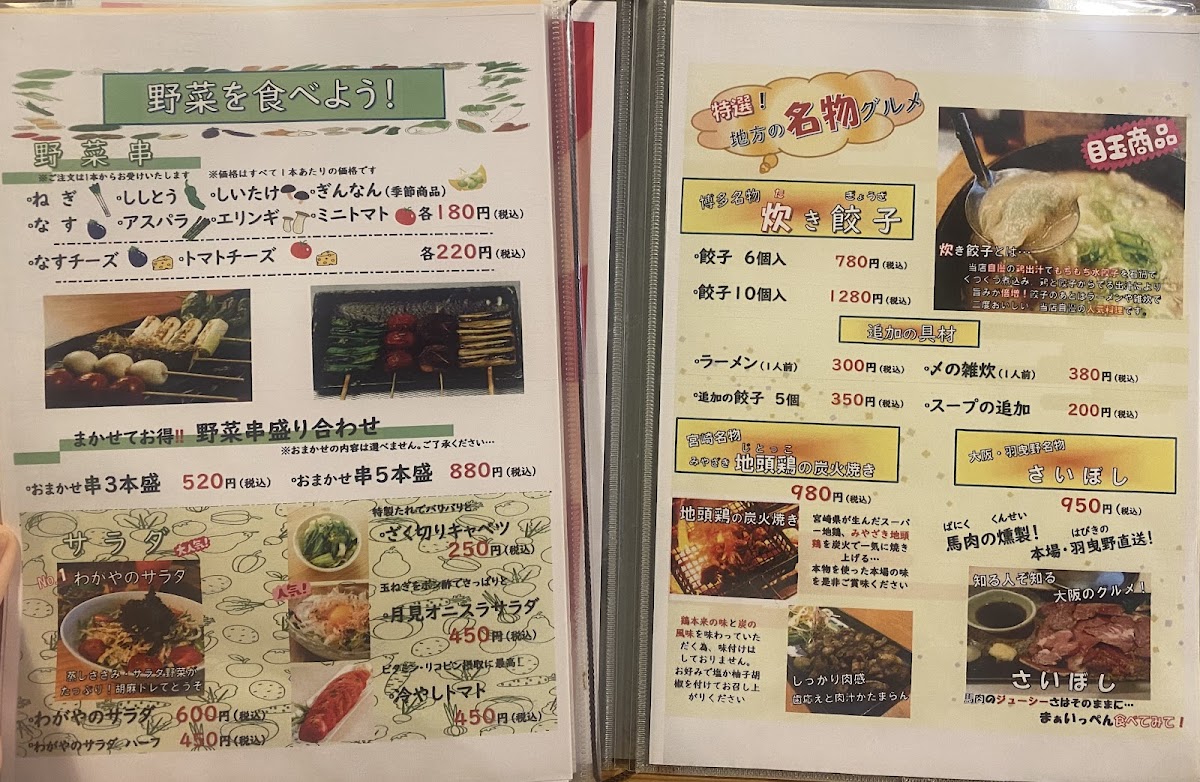 野菜を食べよう!
野菜串
※ご注文は1本からお受けいたします
※価格はすべて1本あたりの価格です
•ねぎ •ししとう •しいたけ •ぎんなん(季節商品)
•なす •アスパラ •エリンギ •ミニトマト 各180円(税込)
•なすチーズ •トマトチーズ 各220円(税込)
まかせてお得!! 野菜串盛り合わせ
※おまかせの内容は選べません。ご了承ください…
•おまかせ串3本盛 520円(税込) •おまかせ串5本盛 880円(税込)
サラダ
人気!
No.1 わかやのサラダ
蒸しささみ・サラダ野菜が
たっぷり!胡麻ドレでどうぞ
•わがやのサラダ 円(税込)
•わがやのサラダ ハーフ 円(税込)
特製たれでパリパリと
•ざく切りキャベツ
250円(税込)
人気!
玉ねぎをポン酢でさっぱりと
•月見オニスラサラダ
450円(税込)
ビタミン・リコピン摂取に最高!
•冷やしトマト
450円(税込)
特選!
地方の名物グルメ
目玉商品
博多名物 炊き餃子
た ぎょうざ
•餃子 6個入 780円(税込)
•餃子10個入 1280円(税込)
炊き餃子とは…
当店自慢の鶏出汁でもちもち水餃子を石鍋で
ぐつぐつ煮込み、鶏と餃子からでる出汁でより
旨みが倍増!餃子のあとはラーメンや雑炊で
二度おいしい。当店自慢の人気料理です。
追加の具材
•ラーメン(1人前) 300円(税込) •〆の雑炊(1人前) 380円(税込)
•追加の餃子 5個 350円(税込) •スープの追加 200円(税込)
宮崎名物
じとっこ
みやざき 地頭鶏の炭火焼き
980円(税込)
地頭鶏の炭火焼き
宮崎県が生んだスーパ
ー地鶏、みやざき地頭
鶏を炭火で一気に焼き
上げる…
本物を使った本場の味
を是非ご賞味ください
鶏本来の味と炭の
風味を味わっていた
だく為、味付けは
しておりません。
お好みで塩か柚子胡
椒を付けてお召し上
がりください
しっかり肉感
歯応えと肉汁がたまらん
大阪・羽曳野名物
さいぼし
950円(税込)
ばにく くんせい
馬肉の燻製!
はびきの
本場・羽曳野直送!
知る人ぞ知る
大阪のグルメ!
さいぼし
馬肉のジューシーさはそのままに…
まぁいっぺん食べてみて!